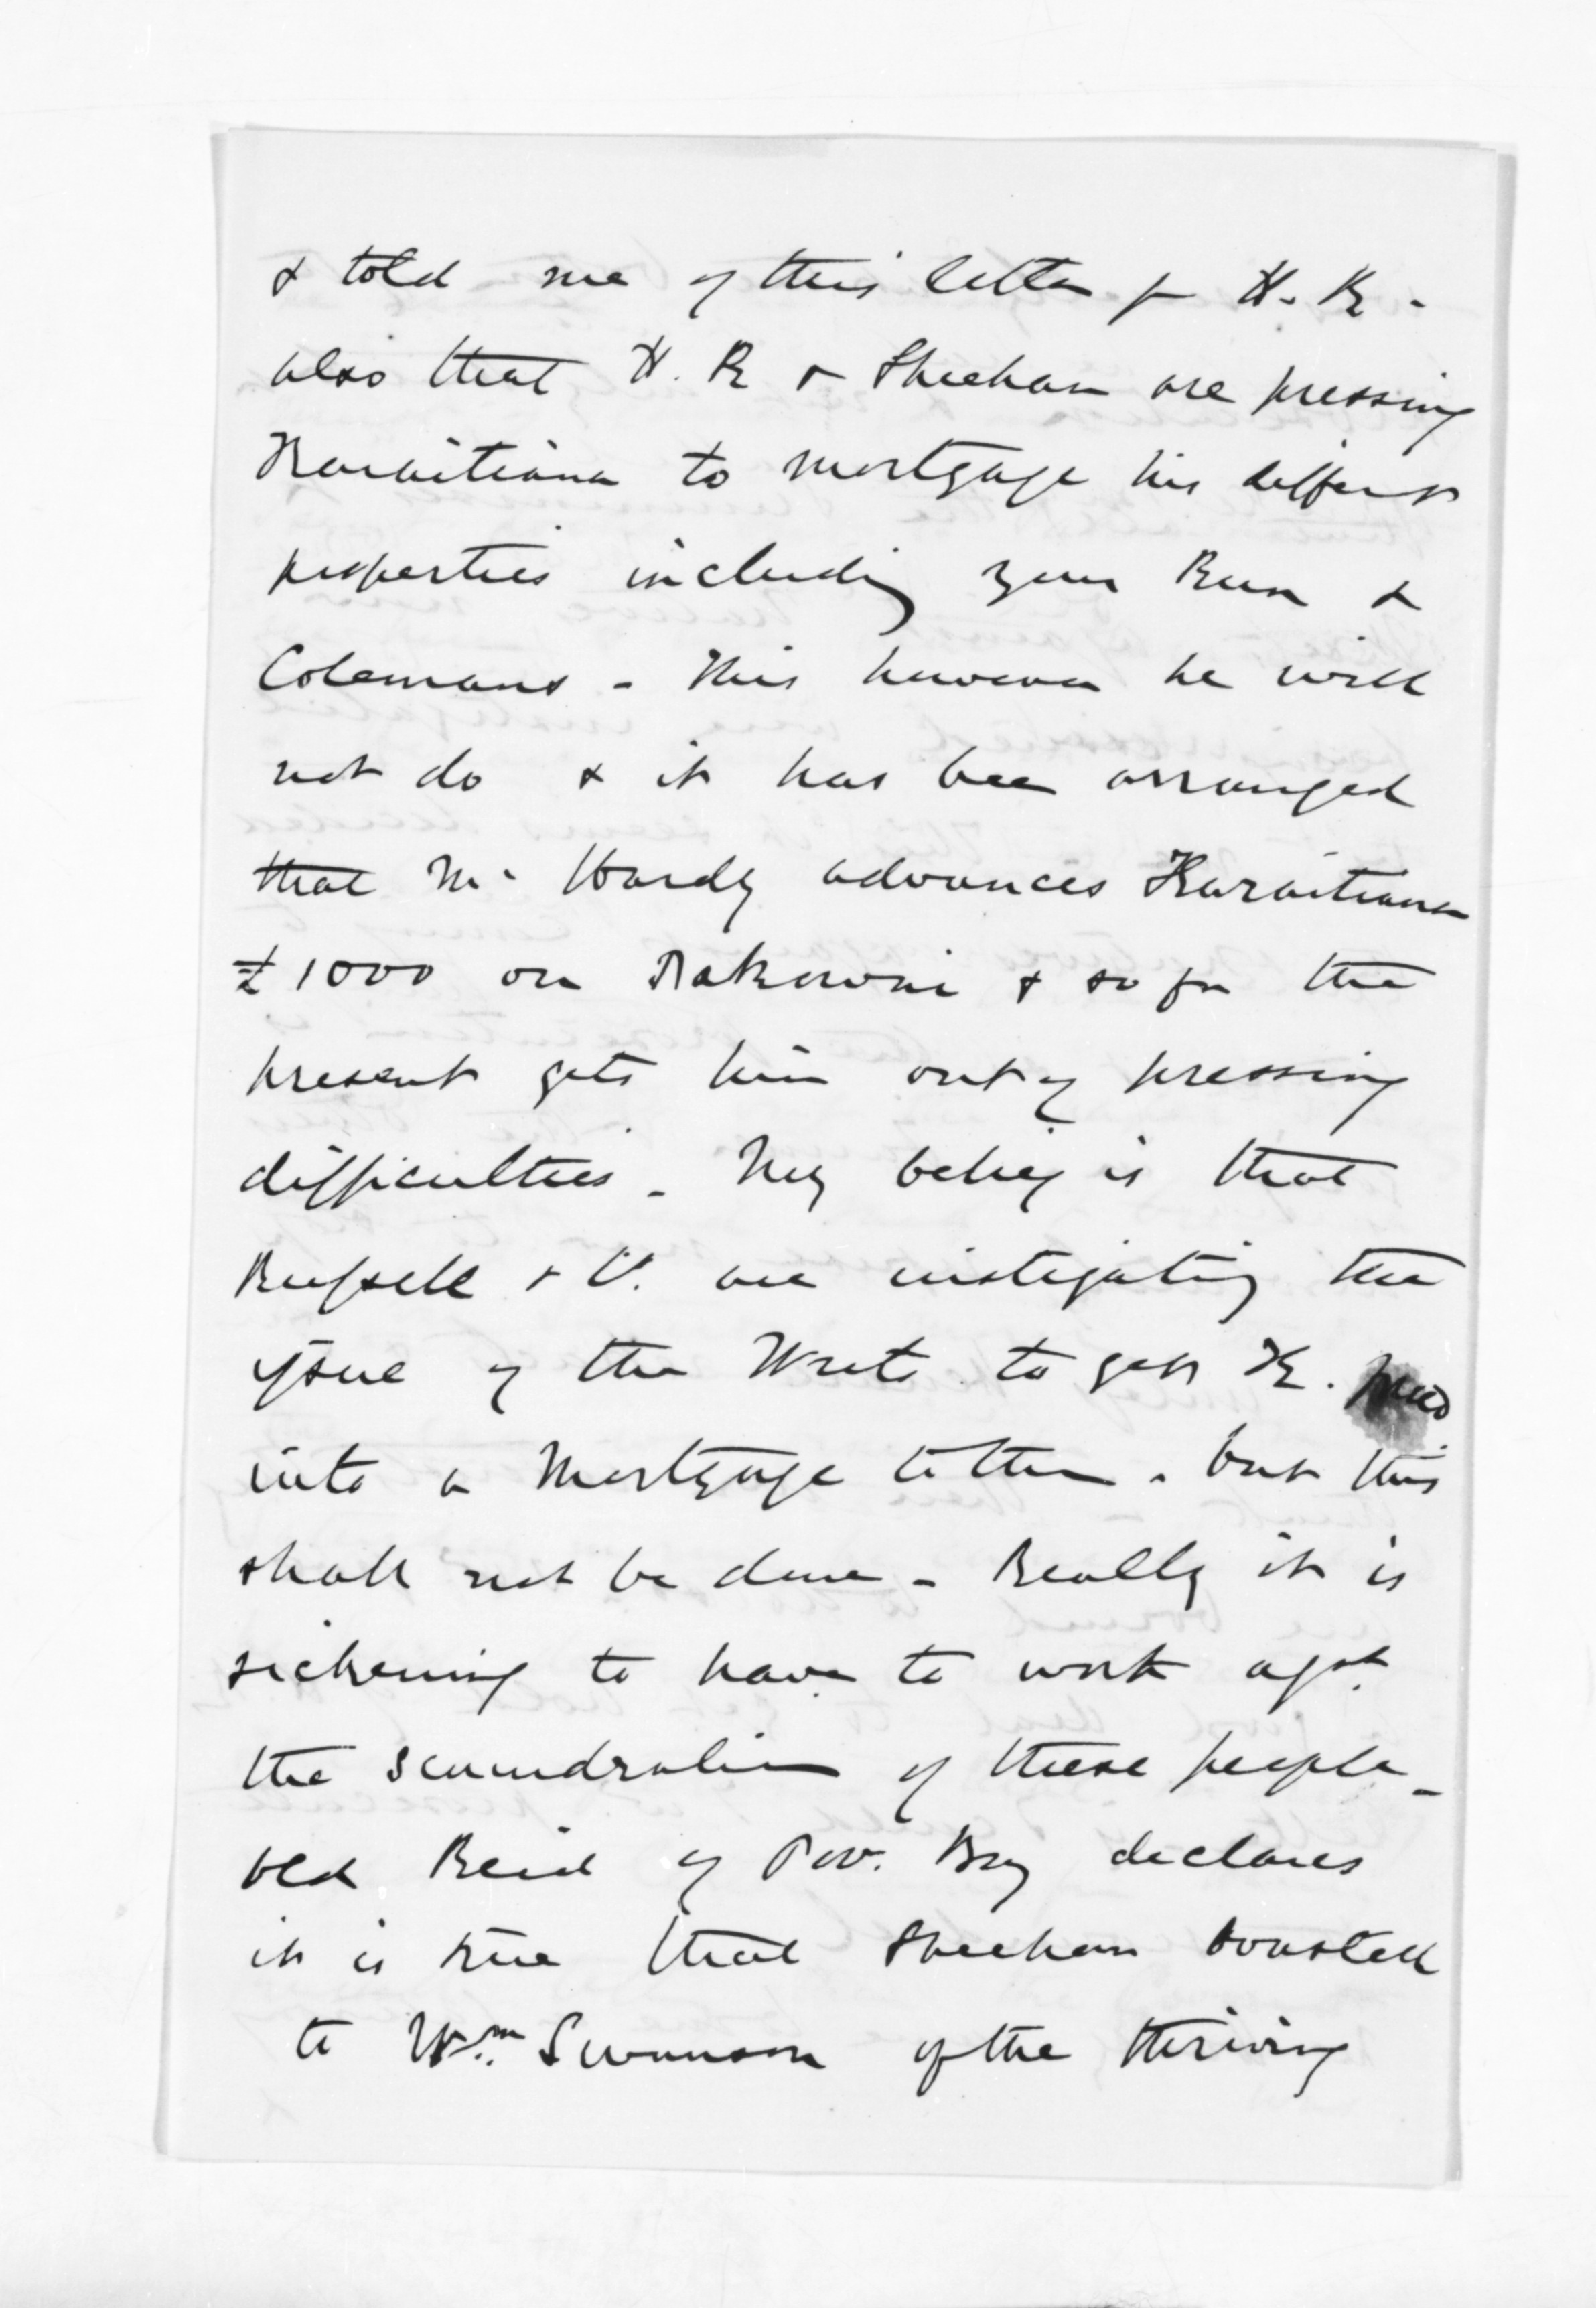 & told me of this letter fr H. R -
also that H. R & Sheehan are pressing
Karaitiana to mortgage his different
properties including your Run &
Colemans - This however he will
not do & it has been arranged
that Mr Hardy advances Karaitiana
£1000 on & so for the
present gets him out of pressing
difficulties - My belief is that
Russell & V. are instigating the
issue of the Writs to get K.
into a Mortgage to them - but this
shall not be done - Really it is
sickening to have to work agst
the scoundralism of these people -
old Reid of Pov. Bay declares
it is true that Sheehan boasted
to Wm Swanson of the thriving